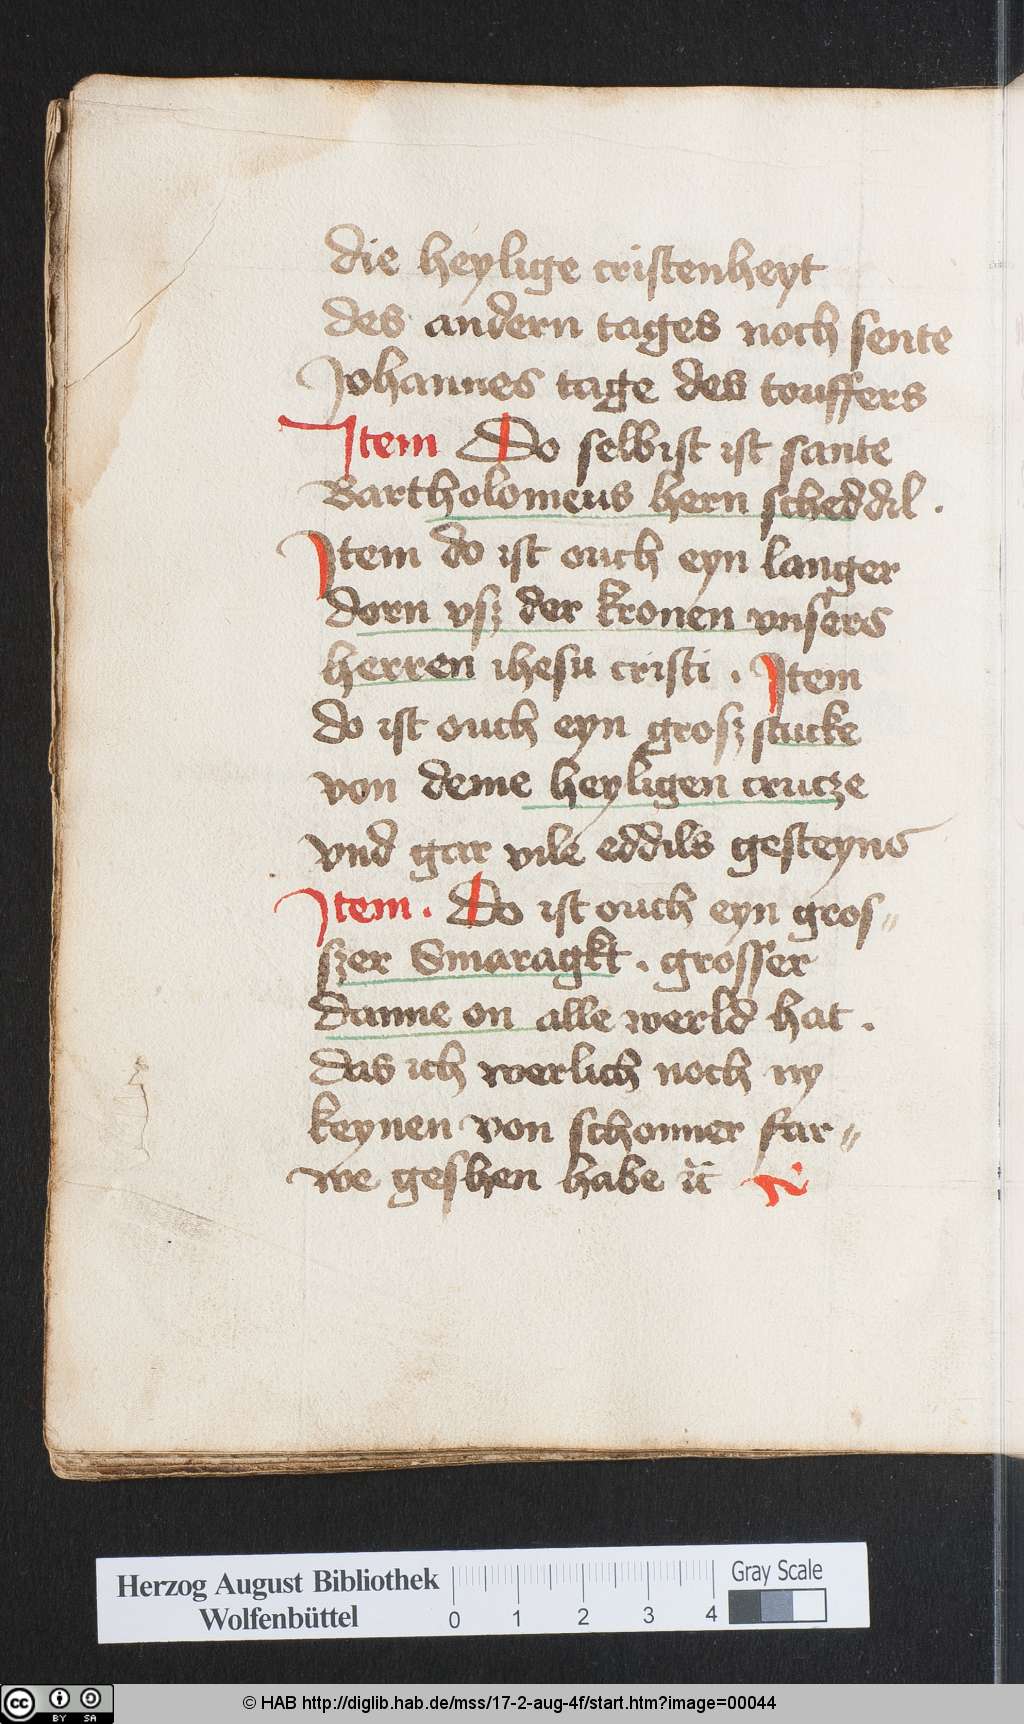 die heylige cristenheyt
des andern tages noch sente
Johannes tage des touffers
Item Do selbist ist sante
Bartholomeus hern scheddil .
Item do ist ouch eyn langer
dorn vsz der kronen vnsers
herren ihesu cristi . Item
do ist ouch eyn grosz stucke
von deme heyligen crucze
vnd gar vile eddils gesteyns
Item . Do ist ouch eyn gros=
szer Smaragkt . grosser
danne on alle werld hat .
das ich werlich noch ny
keynen von schonner far=
we geshen habe
Herzog August Bibliothek
Wolfenbüttel
0 1 2 3 4
Gray Scale
cc BY SA
© HAB http://diglib.hab.de/mss/17-2-aug-4f/start.htm?image=00044